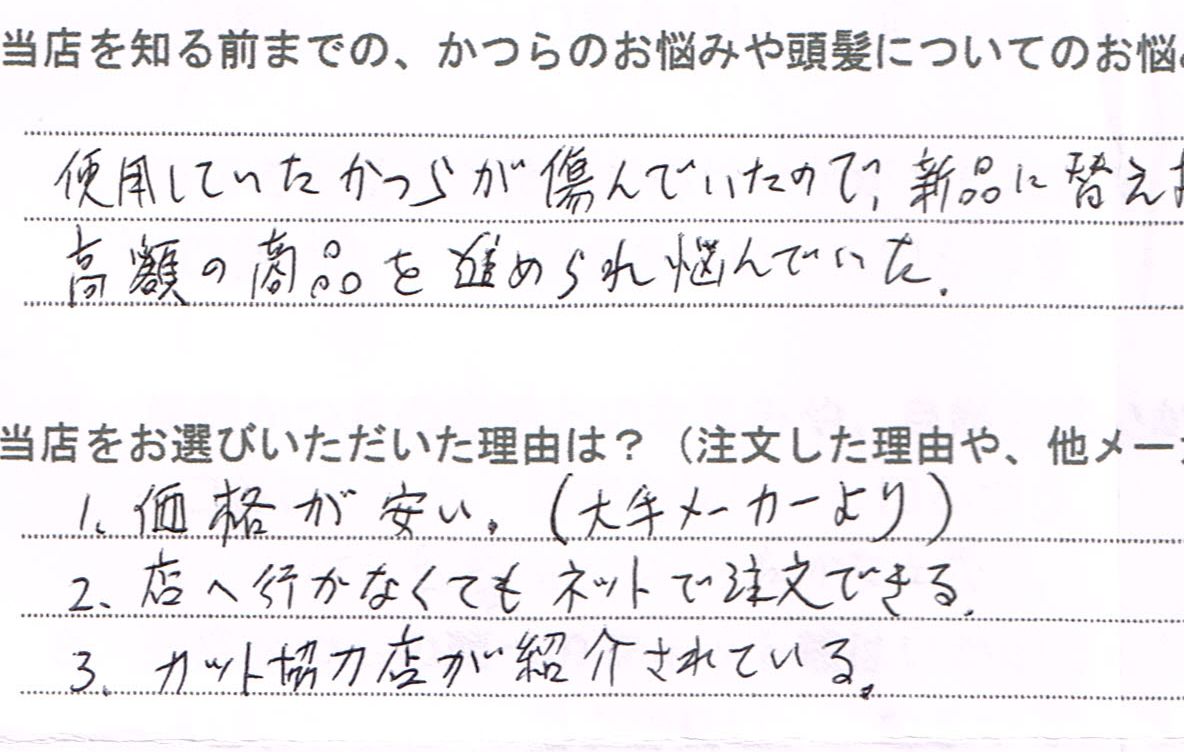 当店を知る前までの、かつらのお悩みや頭髪についてのお悩
使用していたかつらが傷んでいたので、新品に替え
高額の商品を進められ悩んでいた.
当店をお選びいただいた理由は？（注文した理由や、他メー
1. 価格が安い。(大手メーカーより)
2、店へ行かなくてもネットで注文できる.
3. カット協力店が紹介されている。